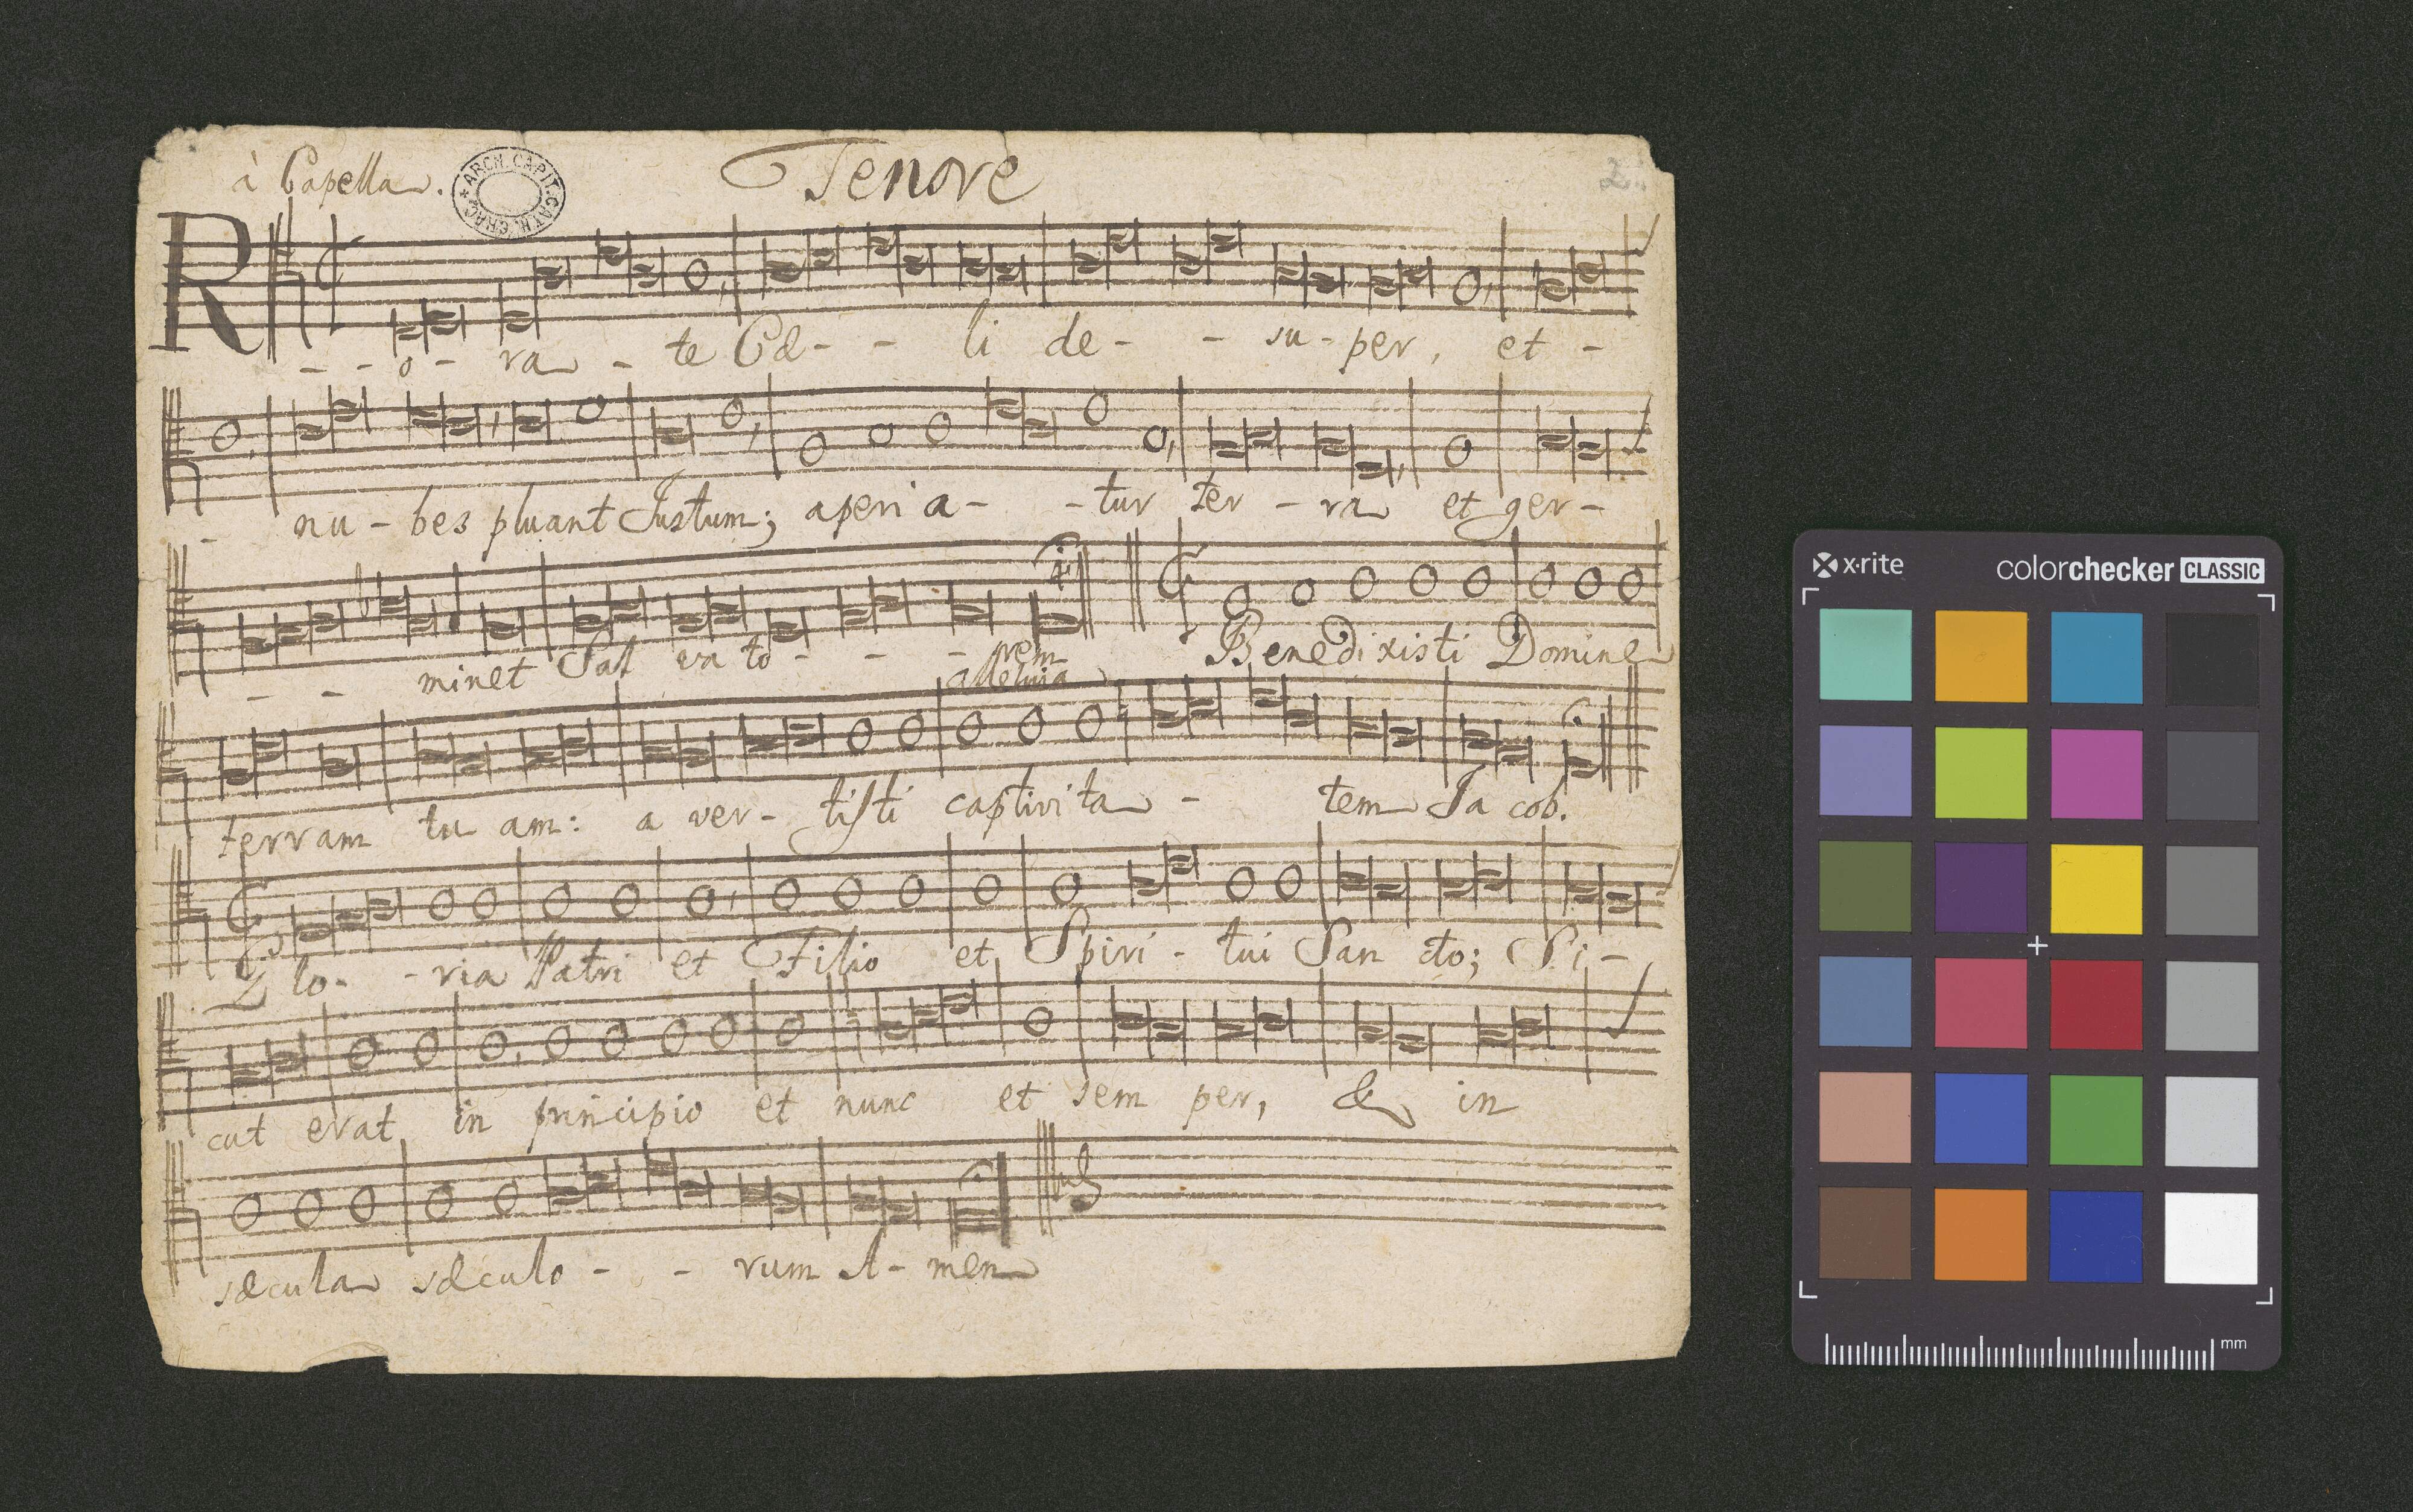 à Capella.
ARCH. CAPIT. CATH. CRAC.
Tenore
2.
R - - o - ra - te Cæ - - li de - - su - per, et -
- nu - bes pluant Justum; aperi a - - tur ter - ra et ger -
- - minet Sal va to - - - rem
alleluia
Benedixisti Domine
terram tu am: a ver - tisti captivi ta - tem Ja cob.
Glo - - ria Patri et Filio et Spiri - tui San cto; Si -
cut erat in principio et nunc et sem per, & in
sæcula sæculo - - rum A - men
x·rite
colorchecker CLASSIC
mm